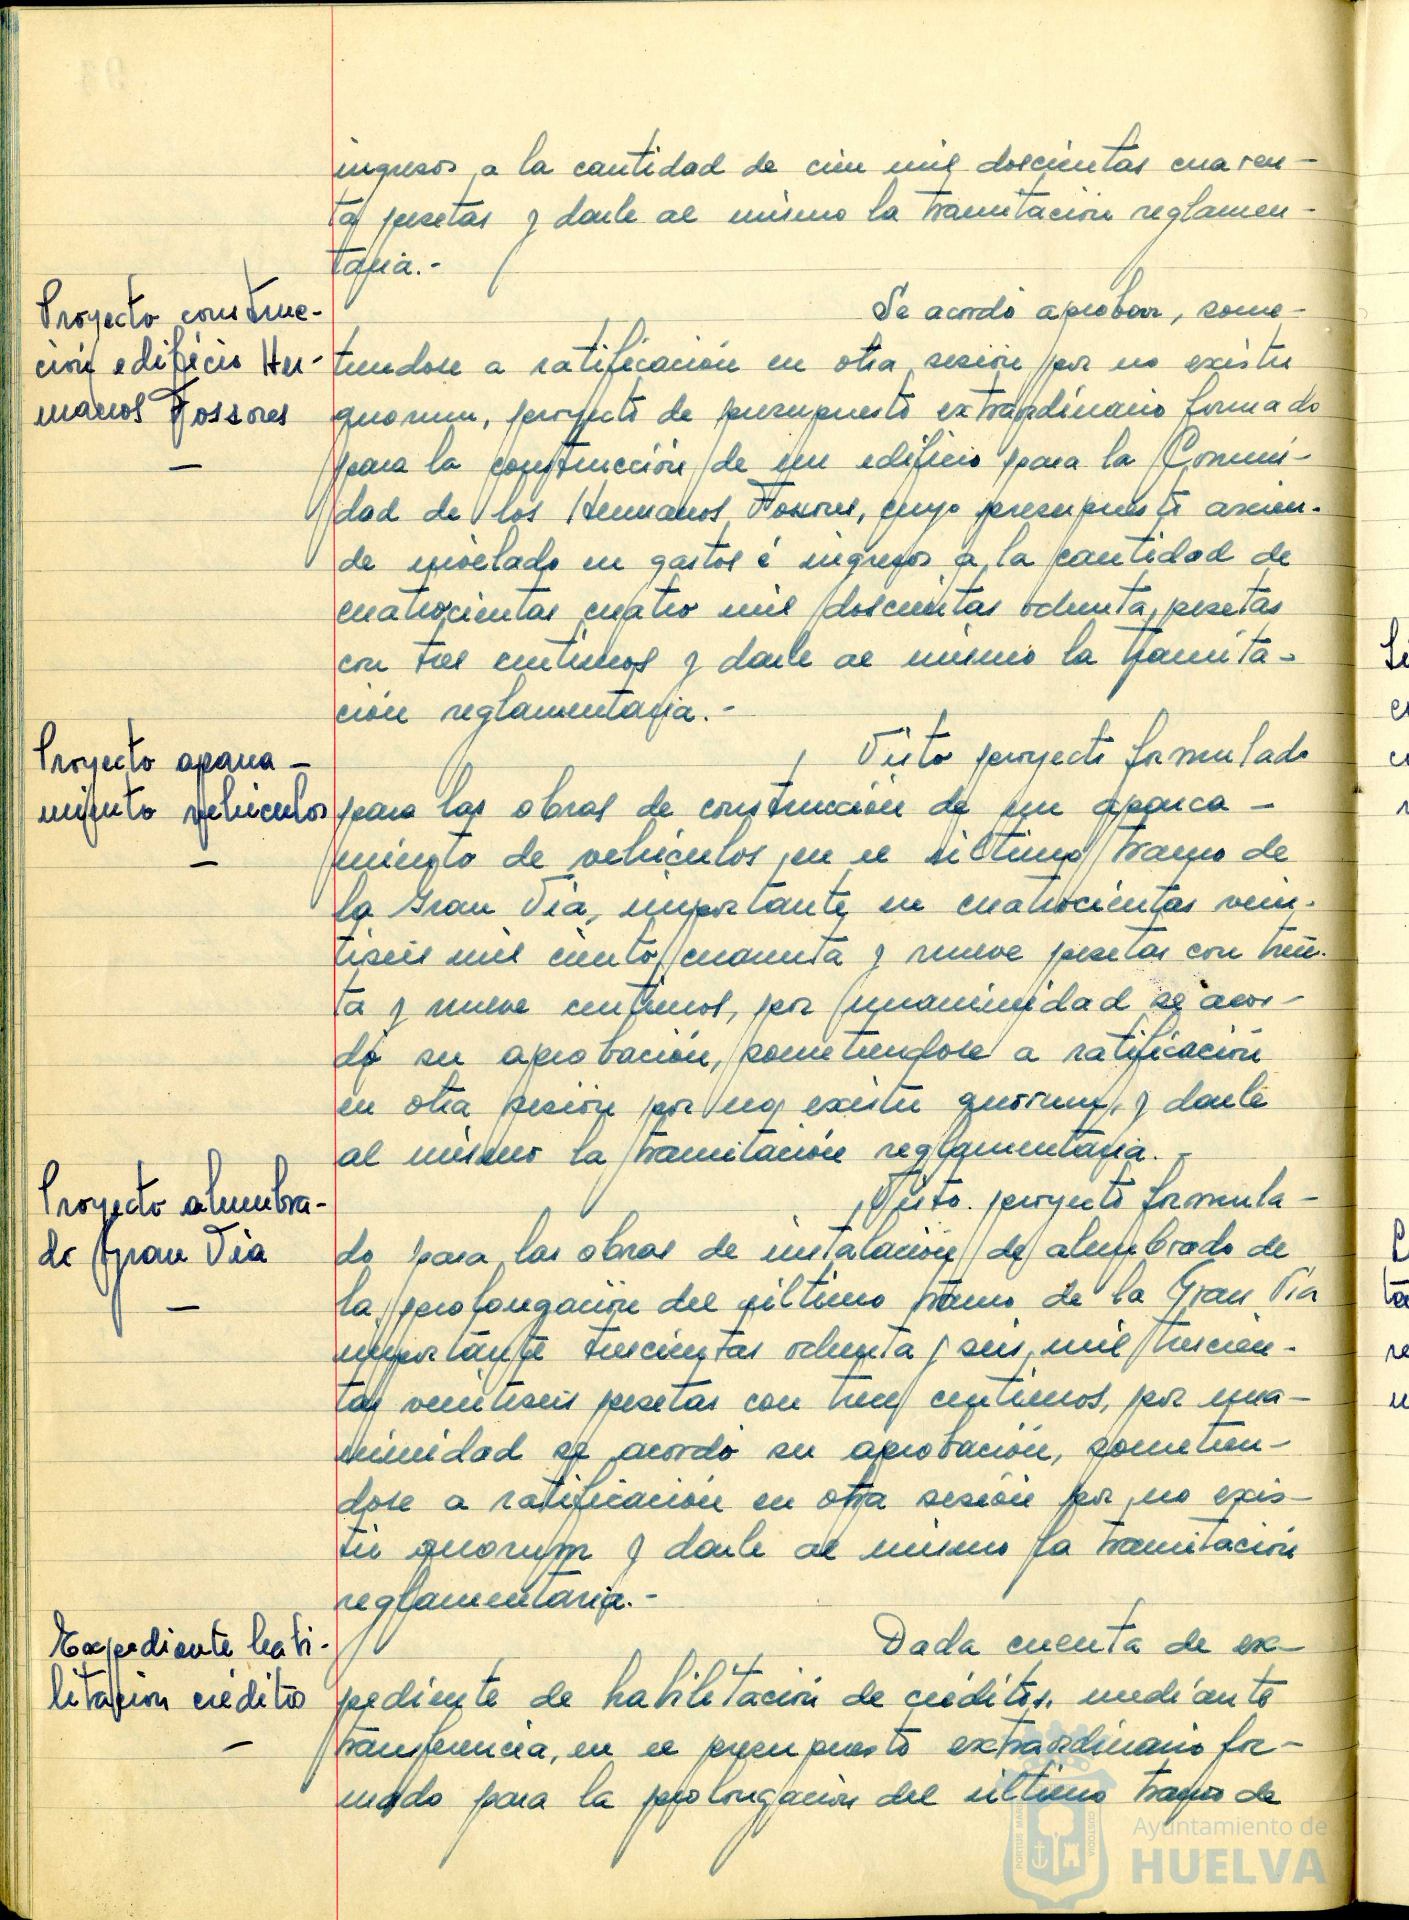 ingresos a la cantidad de cien mil doscientas cuaren-
ta pesetas y darle al mismo la tramitación reglamen-
taria.-
Proyecto construc-
ción edificio Her-
manos Fossores
Se acordó aprobar, some-
tiendose a ratificación en otra sesión por no existir
quorum, proyecto de presupuesto extraordinario formado
para la construcción de un edificio para la Comuni-
dad de los Hermanos Fossores, cuyo presupuesto ascien-
de nivelado en gastos é ingresos a la cantidad de
cuatrocientas cuatro mil doscientas ochenta pesetas
con tres centimos y darle al mismo la tramita-
ción reglamentaria.-
Proyecto aparca-
miento vehiculos
Visto proyecto formulado
para las obras de construcción de un aparca-
miento de vehiculos en el último tramo de
la Gran Vía, importante en cuatrocientas vein-
tiseis mil ciento cuarenta y nueve pesetas con trein-
ta y nueve centimos, por unanimidad se acor-
dó su aprobación, sometiendose a ratificación
en otra sesión por no existir quorum, y darle
al mismo la tramitación reglamentaria.-
Proyecto alumbra-
do Gran Vía
Visto proyecto formula-
do para las obras de instalación de alumbrado de
la prolongación del último tramo de la Gran Vía
importante trescientas ochenta y seis mil trescien-
tas veintiseis pesetas con trece centimos, por una-
nimidad se acordó su aprobación, sometien-
dose a ratificación en otra sesión por no exis-
tir quorum y darle al mismo la tramitación
reglamentaria.-
Expediente habi-
litación crédito
Dada cuenta de ex-
pediente de habilitación de créditos, mediante
transferencia, en el presupuesto extraordinario for-
mado para la prolongación del último tramo de
Ayuntamiento de
HUELVA